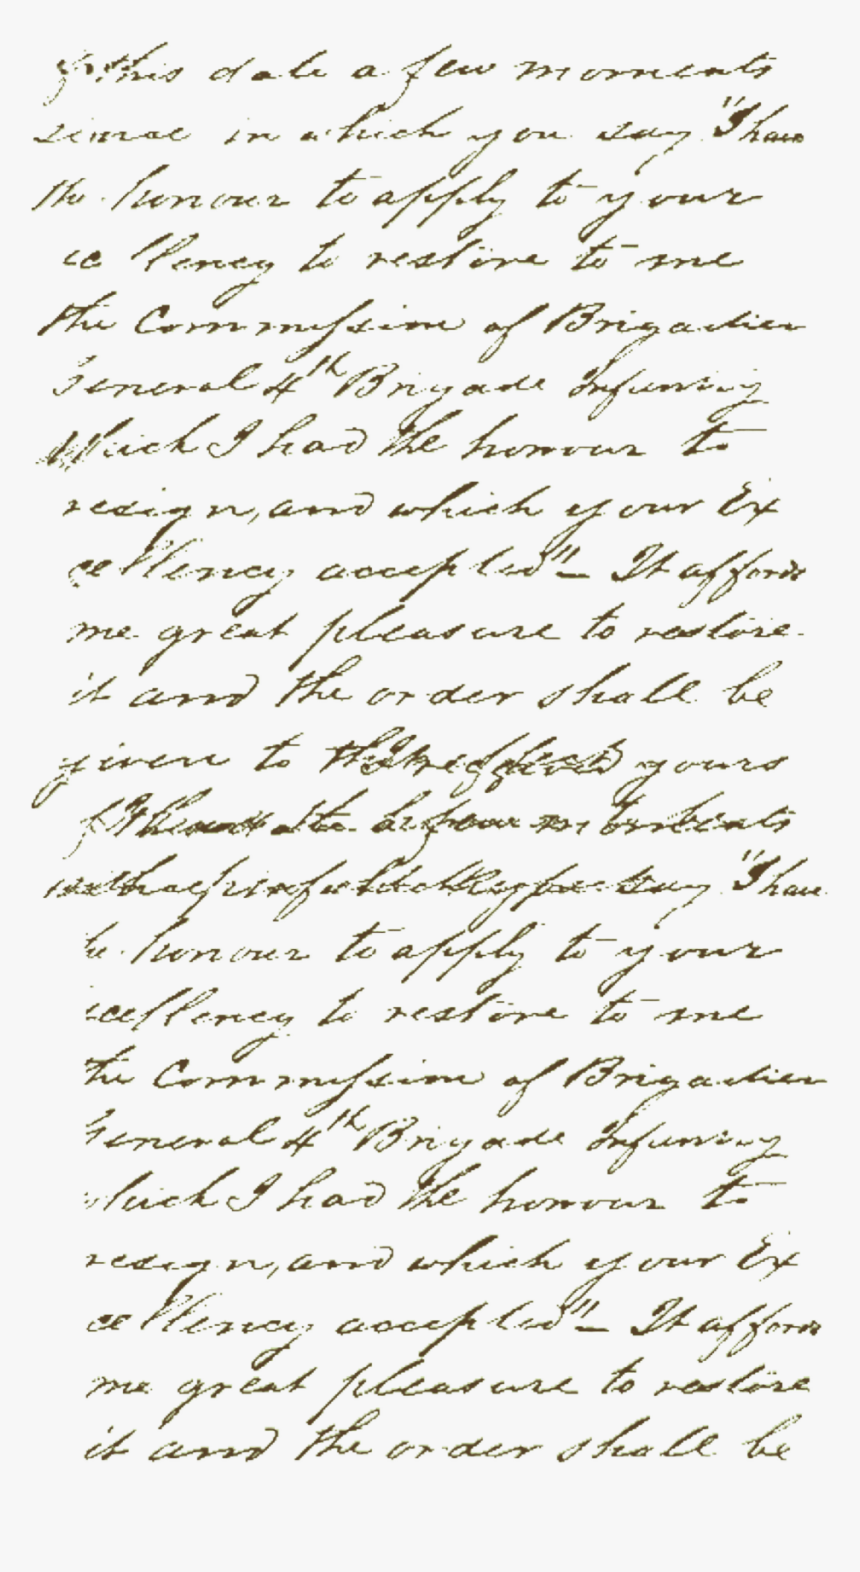 of this date a few moments
since in which you say "I have
the honour to apply to your
ce llency to restore to me
the Commission of Brigadier
General 4th Brigade Infantry
which I had the honour to
resign, and which your Ex
cellency accepted" — It affords
me great pleasure to restore
it and the order shall be
given to yours
say "I have
honour to apply to your
cellency to restore to me
the Commission of Brigadier
General 4th Brigade Infantry
which I had the honour to
resign, and which your Ex
cellency accepted" — It affords
me great pleasure to restore
it and the order shall be